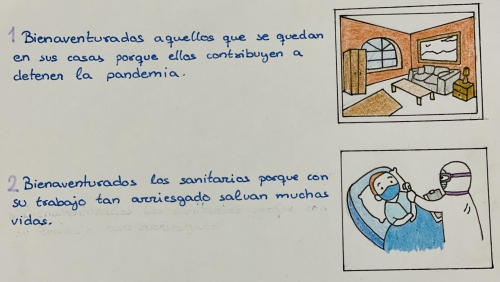 1 Bienaventurados aquellos que se quedan
en sus casas porque ellos contribuyen a
detener la pandemia.
2 Bienaventurados los sanitarios porque con
su trabajo tan arriesgado salvan muchas
vidas.